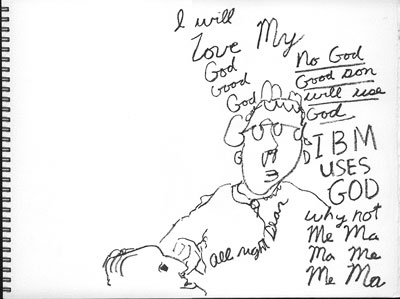 I will
Love My
God
Good
God
No God
Good son
will use
God
IBM
USES
GOD
why not
Me Ma
Ma Me
Me Ma
All right Dear